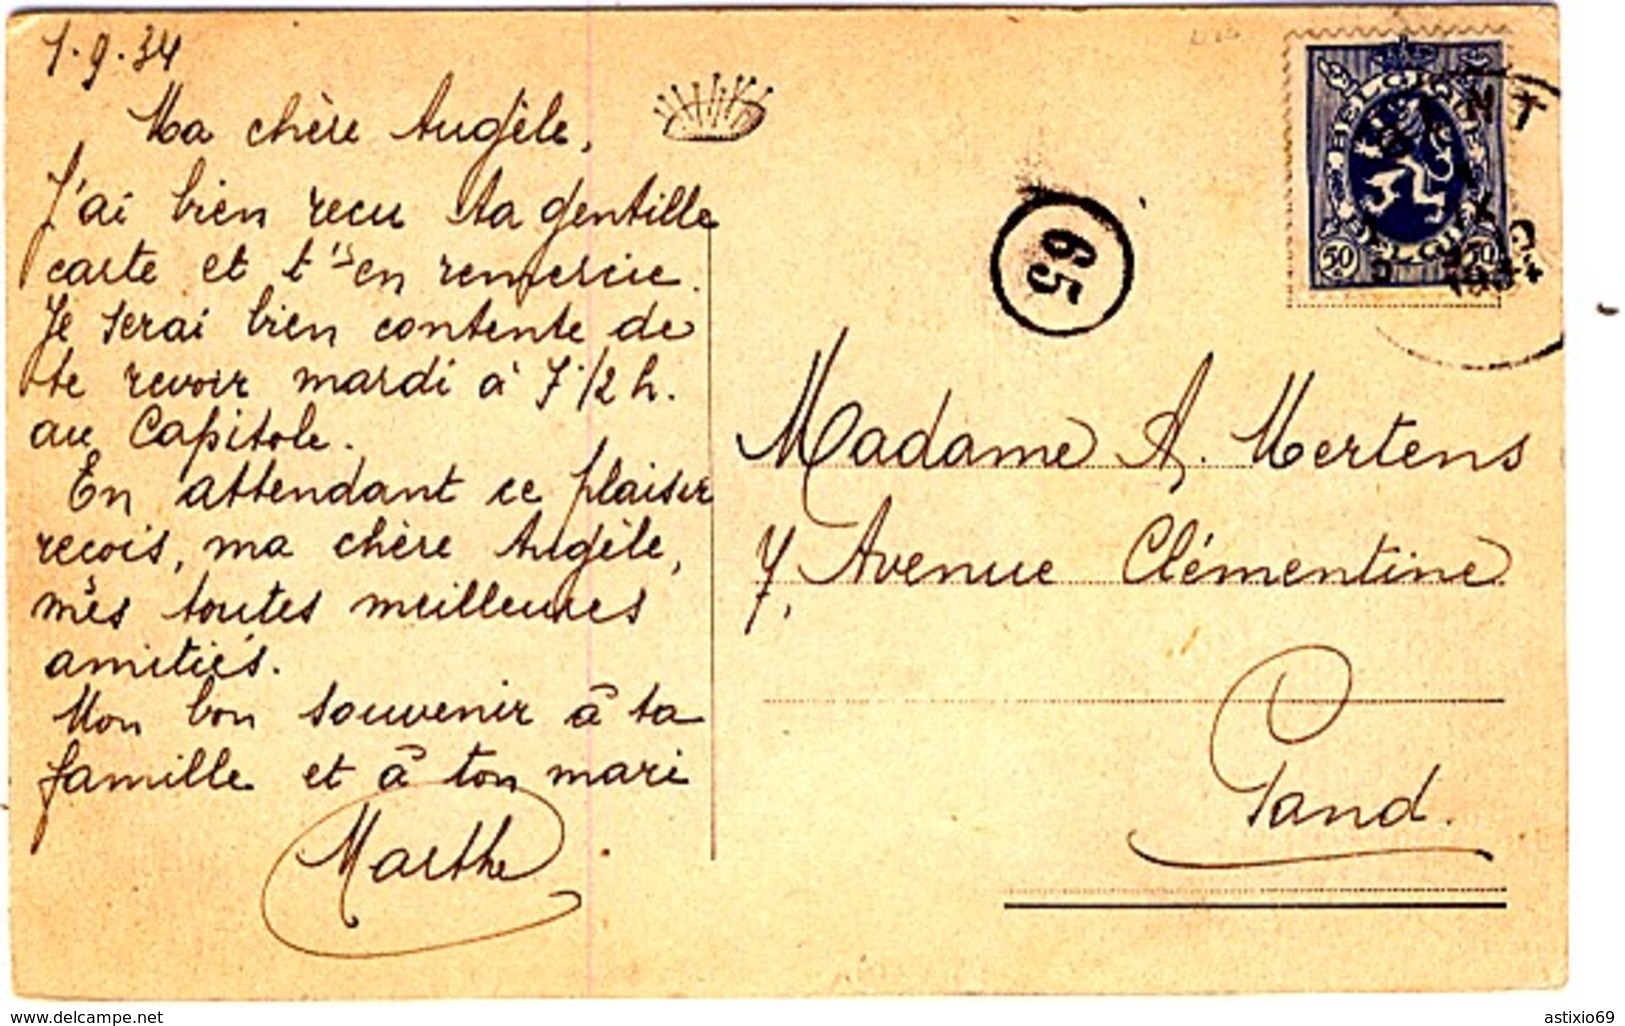 1.9.34
Ma chère Angèle,
J'ai bien recu ta gentille
carte et t'en remercie.
Je serai bien contente de
te revoir mardi à 7 1/2 h.
au Capitole.
En attendant ce plaisir
recois, ma chère Angèle,
mes toutes meilleures
amitiés.
Mon bon souvenir à ta
famille et à ton mari
Marthe
65
BELGIQUE
BELGIE
50 50
1934
Madame A. Mertens
7, Avenue Clémentine
Gand.
delcampe.net
astixio69